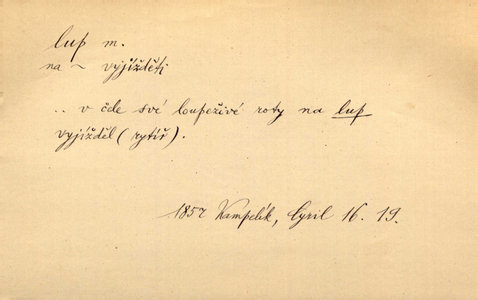 lup m.
na ~ vyjížděti
.. v čele své loupeživé roty na lup
vyjížděl (rytíř).
1857 Kampelík, Cyril 16. 19.